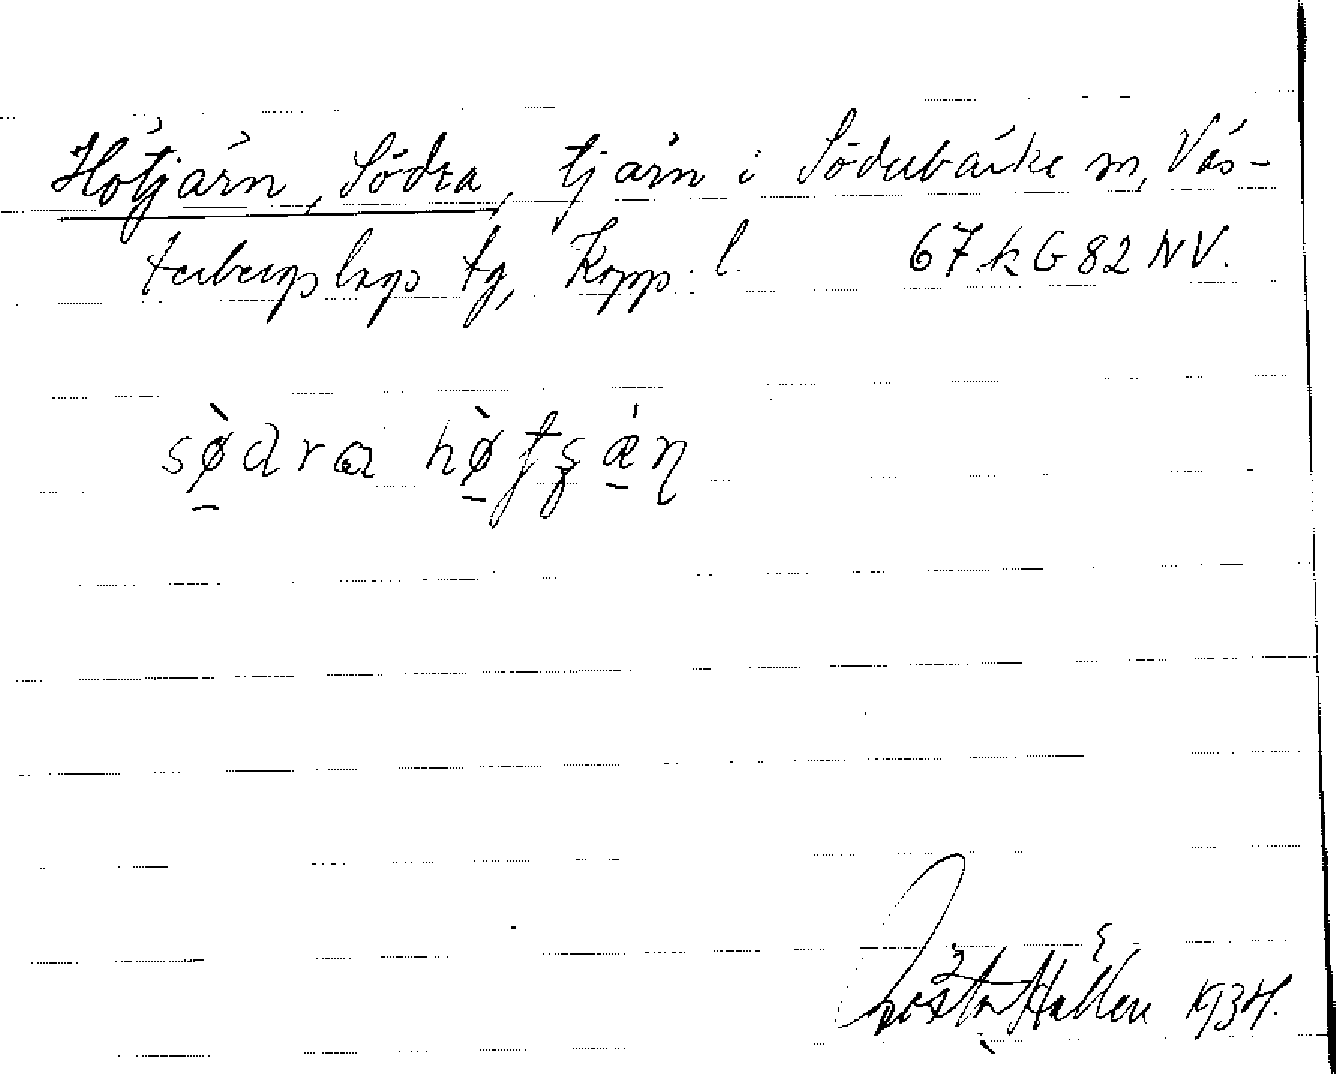 Hötjärn, Södra, tjärn i Söderbärke sn, Väs-
terbergslags tg, Kopp. l. 67 k G 82 NV.
sø̀dra hø̀tʂǽɳ
Gösta Hallén 1934.